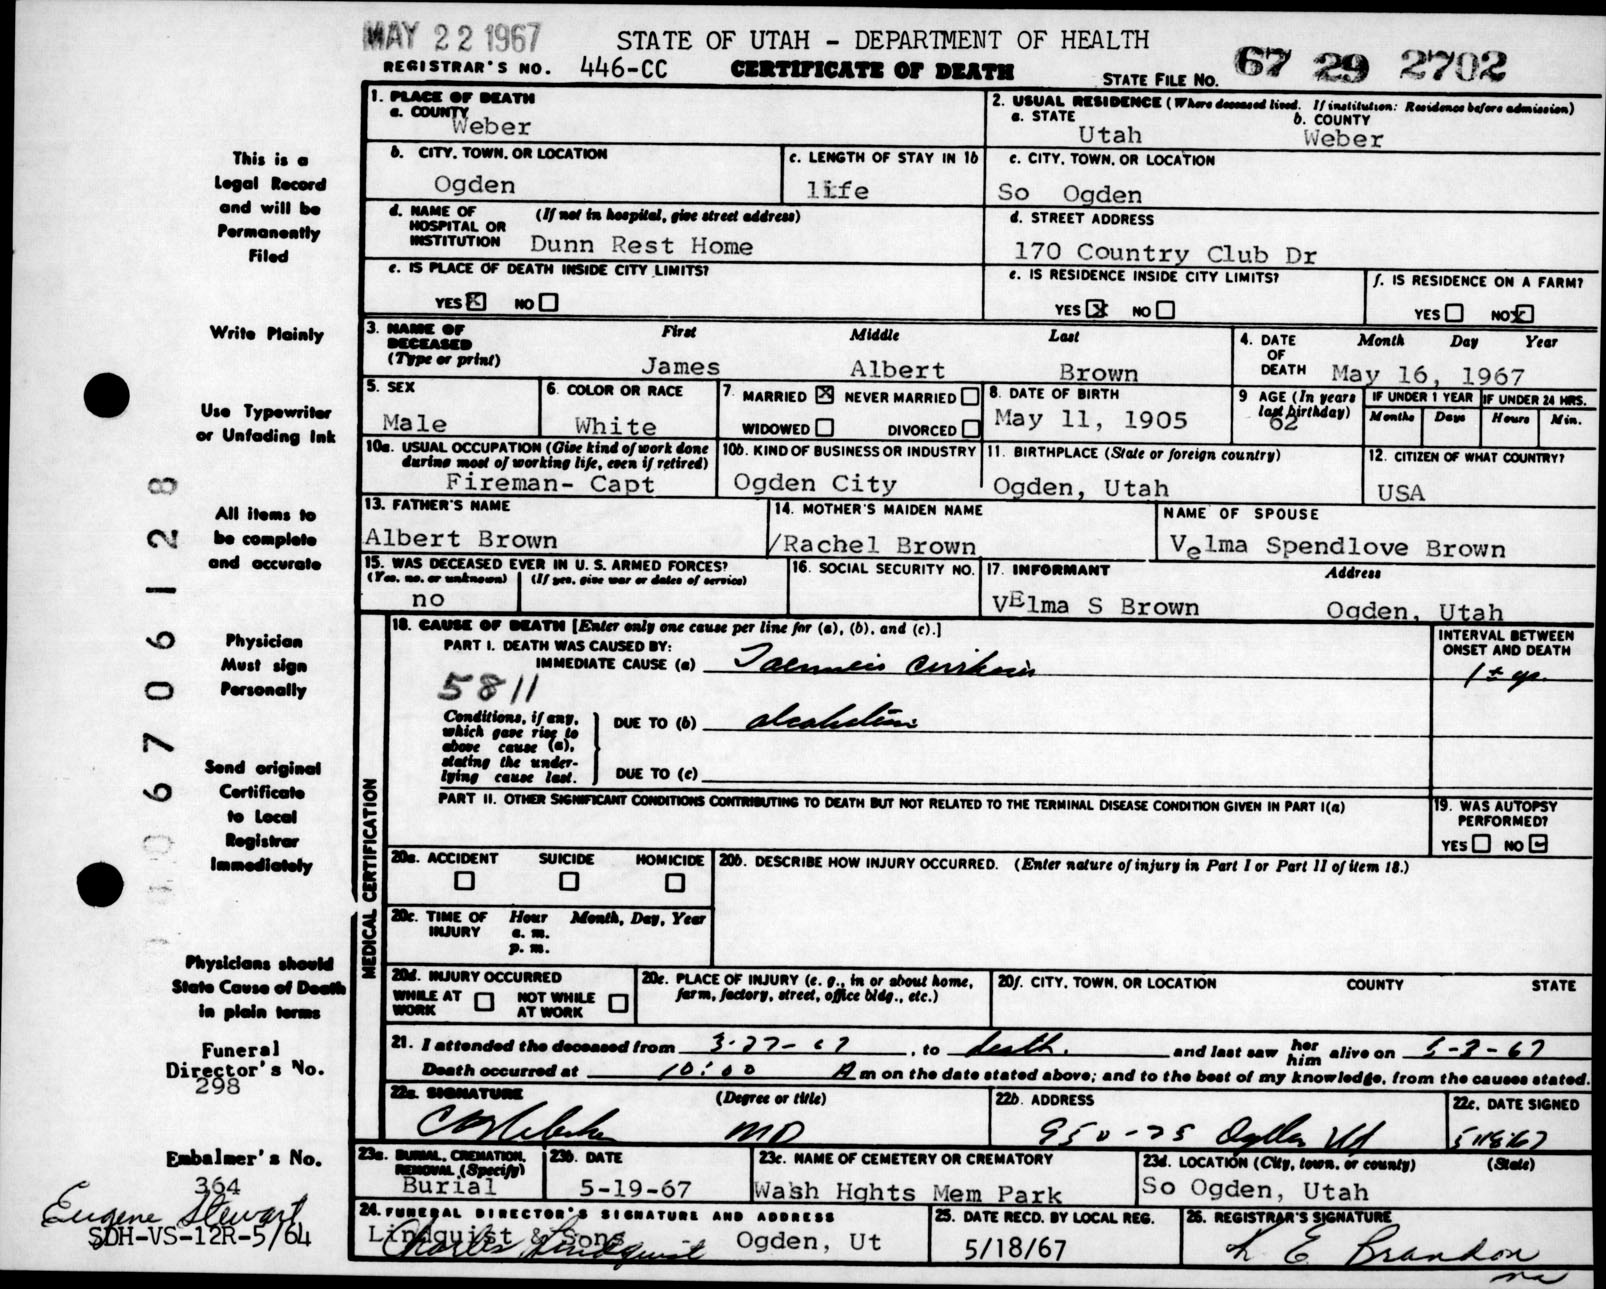 MAY 22 1967
STATE OF UTAH - DEPARTMENT OF HEALTH
REGISTRAR'S NO. 446-CC CERTIFICATE OF DEATH STATE FILE NO. 67 29 2702
This is a
Legal Record
and will be
Permanently
Filed
Write Plainly
Use Typewriter
or Unfading Ink
All items to
be complete
and accurate
Physician
Must sign
Personally
Send original
Certificate
to Local
Registrar
Immediately
Physicians should
State Cause of Death
in plain terms
Funeral
Director's No.
298
Embalmer's No.
364
Eugene Stewart
SDH-VS-12R-5/64
067061128
1. PLACE OF DEATH
a. COUNTY
Weber
2. USUAL RESIDENCE (Where deceased lived. If institution: Residence before admission)
a. STATE b. COUNTY
Utah Weber
b. CITY, TOWN, OR LOCATION
Ogden
c. LENGTH OF STAY IN 1b
life
c. CITY, TOWN, OR LOCATION
So Ogden
d. NAME OF (If not in hospital, give street address)
HOSPITAL OR
INSTITUTION Dunn Rest Home
d. STREET ADDRESS
170 Country Club Dr
e. IS PLACE OF DEATH INSIDE CITY LIMITS?
YES X NO
e. IS RESIDENCE INSIDE CITY LIMITS?
YES X NO
f. IS RESIDENCE ON A FARM?
YES NO X
3. NAME OF First Middle Last
DECEASED
(Type or print) James Albert Brown
4. DATE Month Day Year
OF
DEATH May 16, 1967
5. SEX
Male
6. COLOR OR RACE
White
7. MARRIED X NEVER MARRIED
WIDOWED DIVORCED
8. DATE OF BIRTH
May 11, 1905
9 AGE (In years
last birthday)
62
IF UNDER 1 YEAR IF UNDER 24 HRS.
Months Days Hours Min.
10a. USUAL OCCUPATION (Give kind of work done
during most of working life, even if retired)
Fireman- Capt
10b. KIND OF BUSINESS OR INDUSTRY
Ogden City
11. BIRTHPLACE (State or foreign country)
Ogden, Utah
12. CITIZEN OF WHAT COUNTRY?
USA
13. FATHER'S NAME
Albert Brown
14. MOTHER'S MAIDEN NAME
/Rachel Brown
NAME OF SPOUSE
Velma Spendlove Brown
15. WAS DECEASED EVER IN U. S. ARMED FORCES?
(Yes, no, or unknown) (If yes, give war or dates of service)
no
16. SOCIAL SECURITY NO.
17. INFORMANT Address
VElma S Brown Ogden, Utah
MEDICAL CERTIFICATION
18. CAUSE OF DEATH [Enter only one cause per line for (a), (b), and (c).]
PART I. DEATH WAS CAUSED BY:
IMMEDIATE CAUSE (a) Laennecs cirrhosis
5811
INTERVAL BETWEEN
ONSET AND DEATH
1± yr.
Conditions, if any,
which gave rise to
above cause (a),
stating the under-
lying cause last.
DUE TO (b) alcoholism
DUE TO (c)
PART II. OTHER SIGNIFICANT CONDITIONS CONTRIBUTING TO DEATH BUT NOT RELATED TO THE TERMINAL DISEASE CONDITION GIVEN IN PART I(a)
19. WAS AUTOPSY
PERFORMED?
YES NO
20a. ACCIDENT SUICIDE HOMICIDE
20b. DESCRIBE HOW INJURY OCCURRED. (Enter nature of injury in Part I or Part II of item 18.)
20c. TIME OF Hour Month, Day, Year
INJURY a. m.
p. m.
20d. INJURY OCCURRED
WHILE AT NOT WHILE
WORK AT WORK
20e. PLACE OF INJURY (e. g., in or about home,
farm, factory, street, office bldg., etc.)
20f. CITY, TOWN, OR LOCATION COUNTY STATE
21. I attended the deceased from 3-27-67, to death. and last saw her him alive on 5-2-67
Death occurred at 10:00 A m on the date stated above; and to the best of my knowledge, from the causes stated.
22a. SIGNATURE (Degree or title)
MD
22b. ADDRESS
950-25 Ogden Ut
22c. DATE SIGNED
5/18/67
23a. BURIAL, CREMATION,
REMOVAL (Specify)
Burial
23b. DATE
5-19-67
23c. NAME OF CEMETERY OR CREMATORY
Wash Hghts Mem Park
23d. LOCATION (City, town, or county) (State)
So Ogden, Utah
24. FUNERAL DIRECTOR'S SIGNATURE AND ADDRESS
Lindquist & Sons Ogden, Ut
Charles Lindquist
25. DATE RECD. BY LOCAL REG.
5/18/67
26. REGISTRAR'S SIGNATURE
K E Brandon